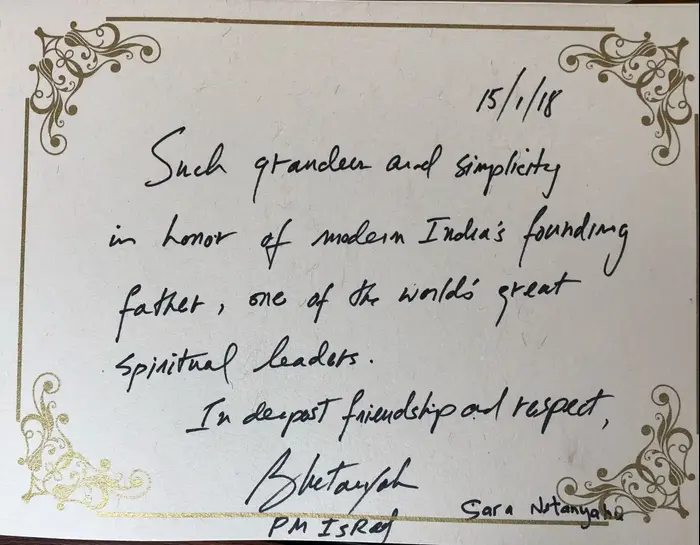 15/1/18
Such grandeur and simplicity
in honor of modern India's founding
father, one of the world's great
spiritual leaders.
In deepest friendship and respect,
B Netanyahu
PM Israel
Sara Netanyahu